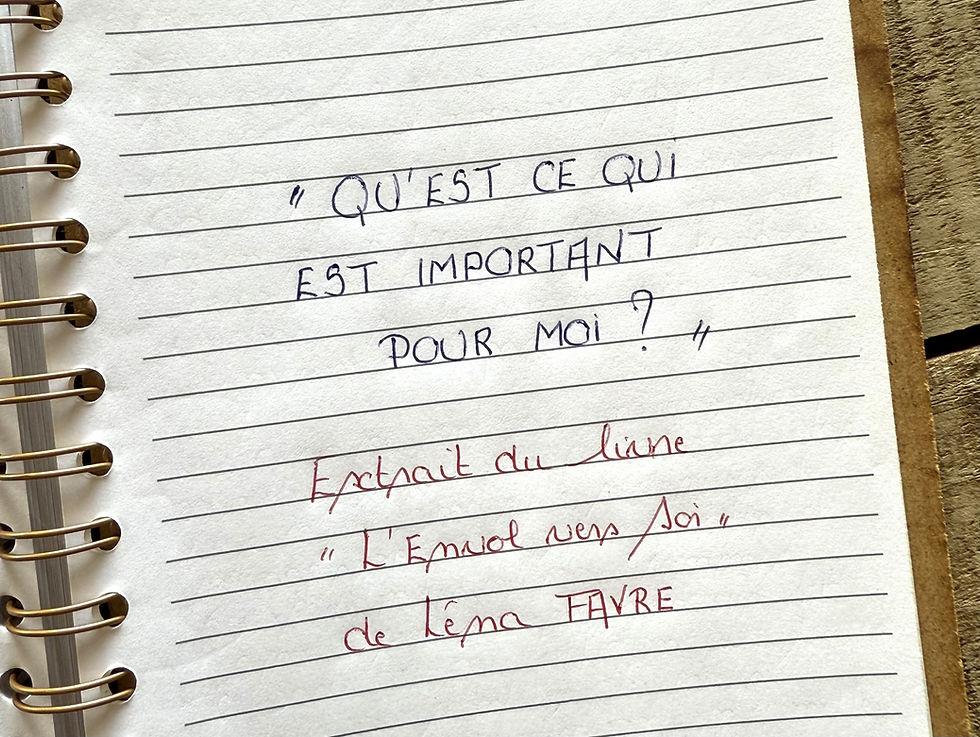 " QU'EST CE QUI
EST IMPORTANT
POUR MOi ? "
Extrait du livre
" L'Envol vers Soi "
de Léna FAVRE